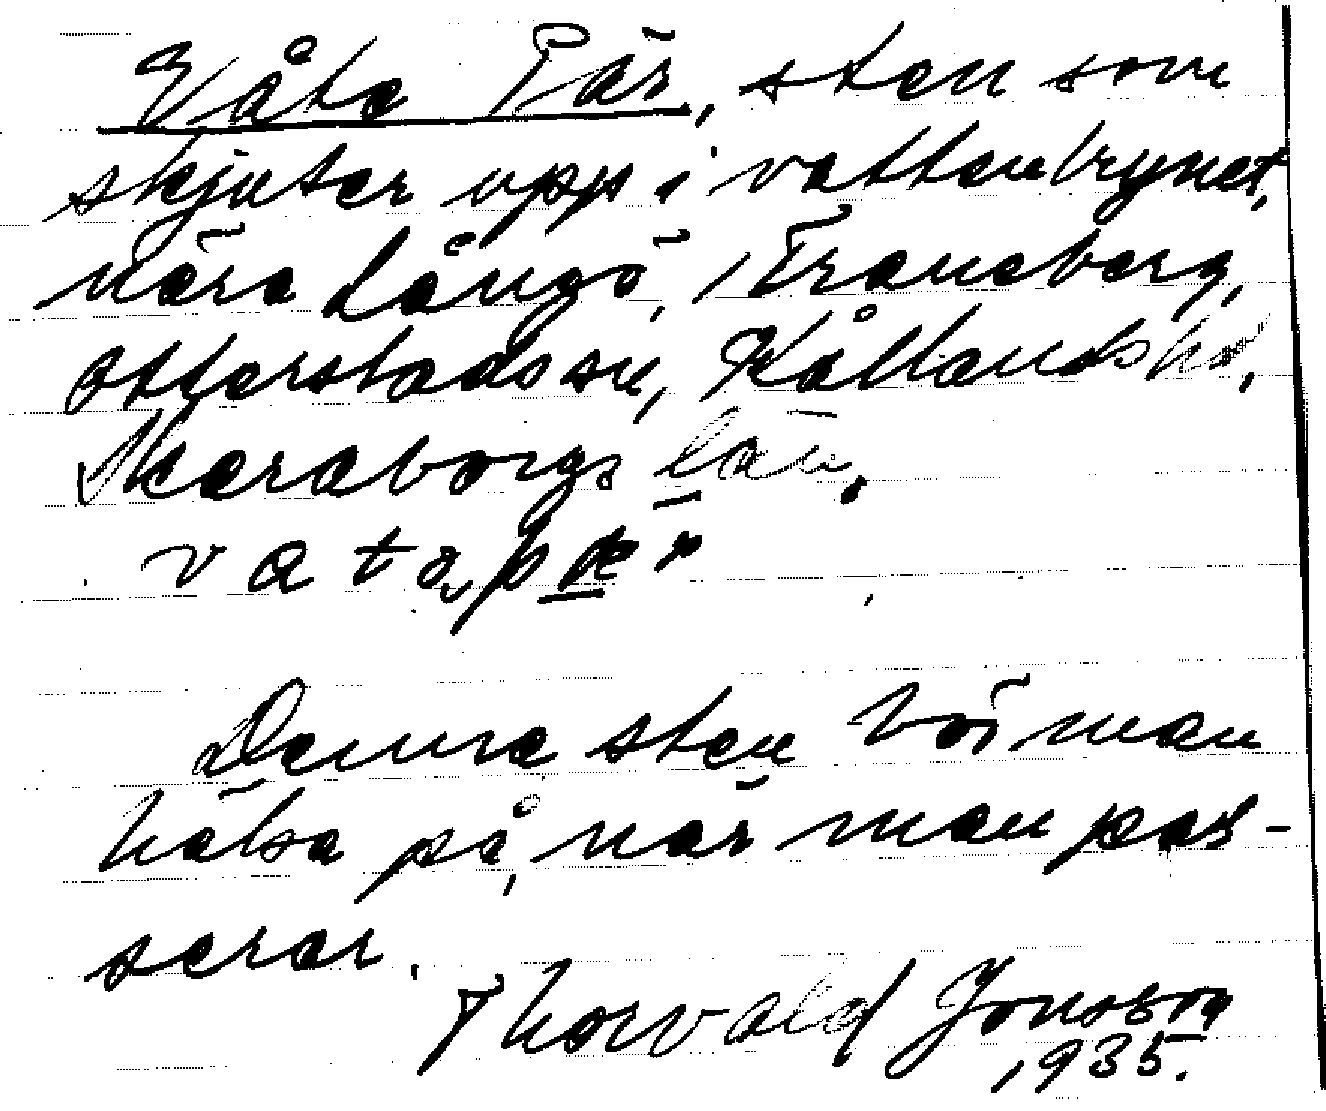 Våte Pär, sten som
skjuter upp i vattenbrynet,
nära Långö, Traneberg,
Otterstads sn, Kållands hd,
Skaraborgs län.
Denna sten bör man
hälsa på, när man pas-
serar.
Thorvald Jonsson
1935.